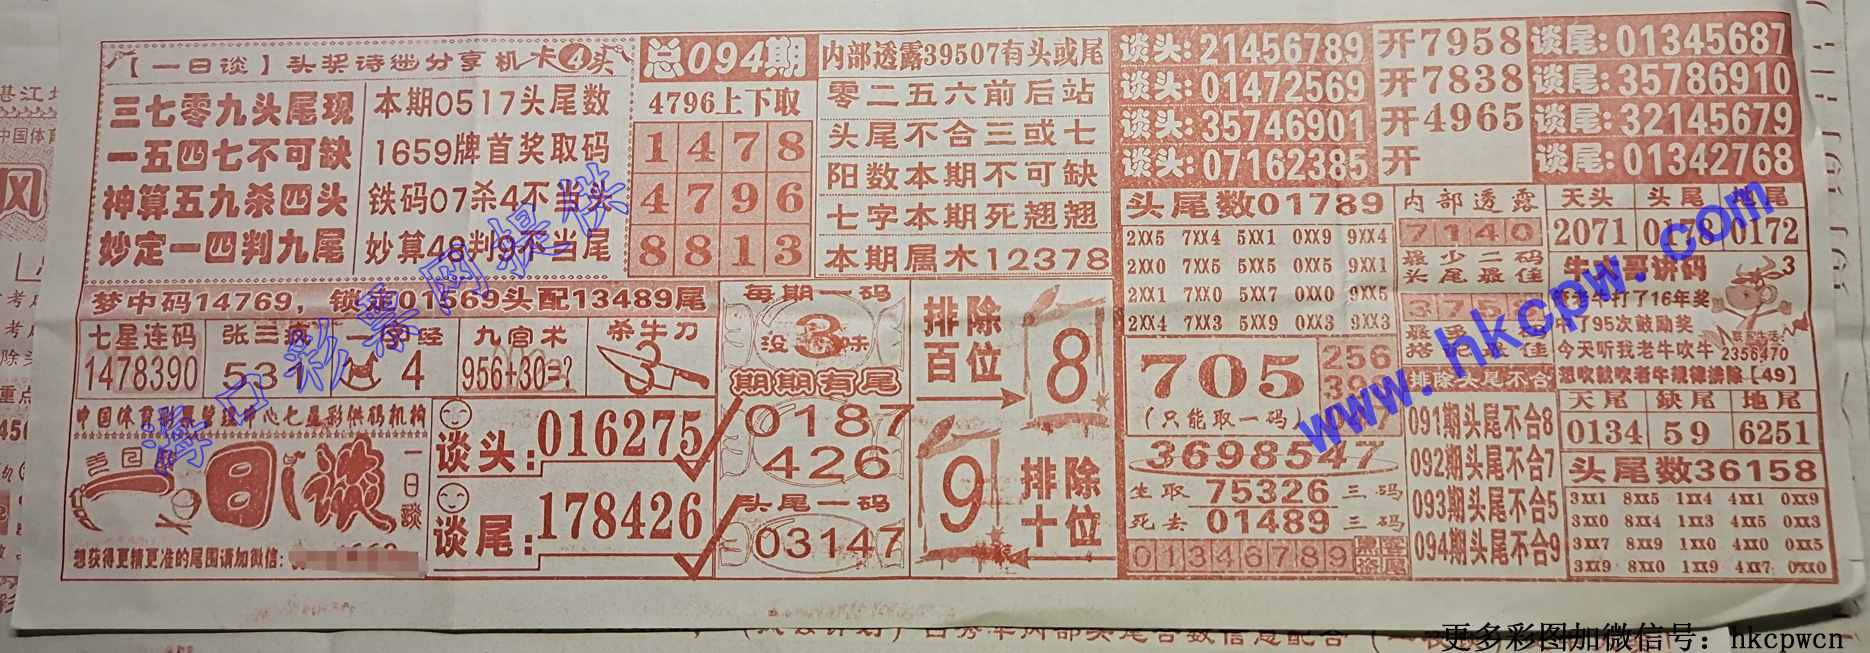 【一日谈】头奖诗谜分享 机卡4头
三七零九头尾现
一五四七不可缺
神算五九杀四头
妙定一四判九尾
本期0517头尾数
1659牌首奖取码
铁码07杀4不当头
妙算48判9不当尾
总094期
4796上下取
1478
4796
8813
内部透露39507有头或尾
零二五六前后站
头尾不合三或七
阳数本期不可缺
七字本期死翘翘
本期属木12378
谈头:21456789 开7958 谈尾:01345687
谈头:01472569 开7838 谈尾:35786910
谈头:35746901 开4965 谈尾:32145679
谈头:07162385 开 谈尾:01342768
梦中码14769，锁定01569头配13489尾
七星连码
1478390
张三疯
531
一字经
4
九宫术
956+30=?
杀牛刀
3
中国体育彩票管理中心七星彩供码机构
一日谈
一日谈
想获得更精更准的尾围请加微信:
谈头:016275
谈尾:178426
每期一码
3
期期有尾
0187
426
头尾一码
03147
排除百位
8
9
排除十位
头尾数01789
2XX5 7XX4 5XX1 0XX9 9XX4
2XX0 7XX5 5XX5 0XX5 9XX1
2XX1 7XX0 5XX7 0XX0 9XX5
2XX4 7XX3 5XX9 0XX3 9XX3
705
256
(只能取一码)
3698547
生取 75326 三码
死去 01489 三码
01346789
内部透露
7140
最少二码
头尾最佳
排除头尾不合
091期头尾不合8
092期头尾不合7
093期头尾不合5
094期头尾不合9
天头 头尾
2071 0178 0172
牛哥讲码
3
打了16年奖
中了95次鼓励奖
今天听我老牛吹牛
2356470
想吹就吹老牛规律排除【49】
天尾 缺尾 地尾
0134 59 6251
头尾数36158
3XX1 8XX5 1XX4 4XX1 0XX9
3XX0 8XX4 1XX3 4XX5 0XX3
3XX7 8XX9 1XX0 4XX0 0XX5
3XX9 8XX0 1XX9 4XX7 0XX0
海口彩票网提供
www.hkcpw.com
更多彩图加微信号：hkcpwcn